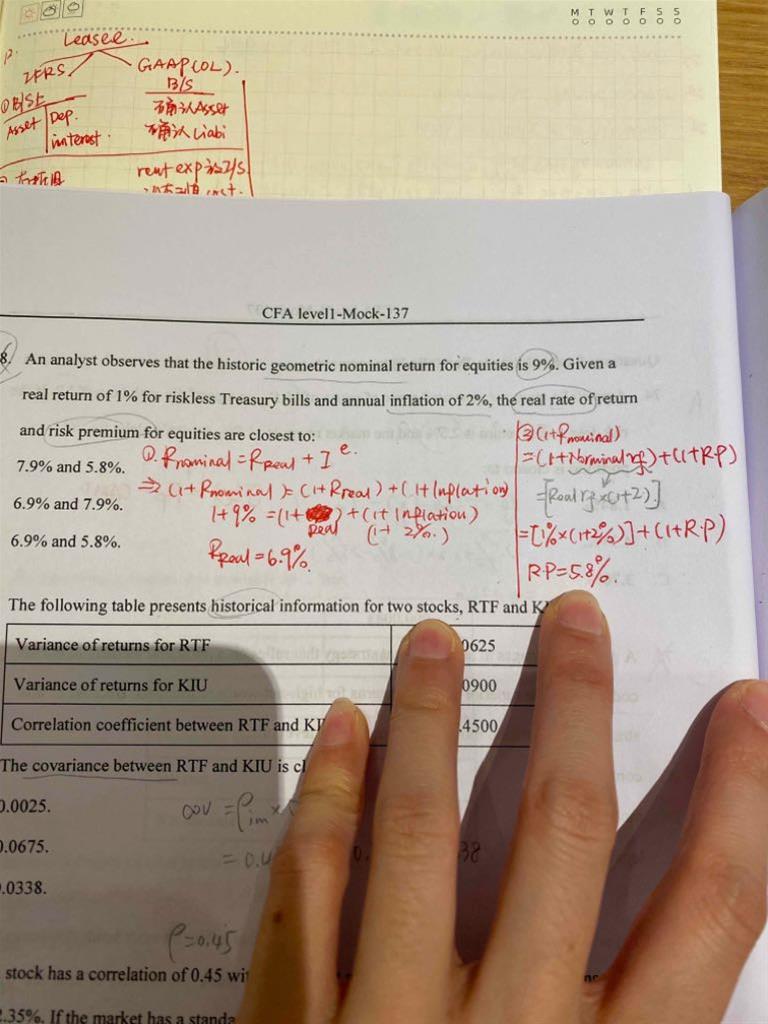 M T W T F S S
Leasee.
IFRS
GAAP(OL).
B/S
① B/SE
确认Asset
Asset
Dep.
interest.
确认Liabi
rent exp
I/S
CFA level1-Mock-137
8. An analyst observes that the historic geometric nominal return for equities is 9%. Given a
real return of 1% for riskless Treasury bills and annual inflation of 2%, the real rate of return
and risk premium for equities are closest to:
7.9% and 5.8%.
6.9% and 7.9%.
6.9% and 5.8%.
①. Rnominal = RReal + I e.
⇒ (1+Rnominal) = (1+Rreal) + (1+Inflation)
1+9% = (1+ Real) + (1+Inflation)
(1+ 2%.)
Rreal = 6.9%.
②(1+Rnominal)
= (1+Norminal rf) + (1+R.P)
= [Real rf × (1+2)]
= [1% × (1+2%)] + (1+R.P)
R.P = 5.8%.
The following table presents historical information for two stocks, RTF and
Variance of returns for RTF
0625
Variance of returns for KIU
0900
Correlation coefficient between RTF and
.4500
The covariance between RTF and KIU is
0.0025.
.0675.
.0338.
cov = ρim ×
= 0.4
38
ρ=0.45
stock has a correlation of 0.45
.35%. If the market has a